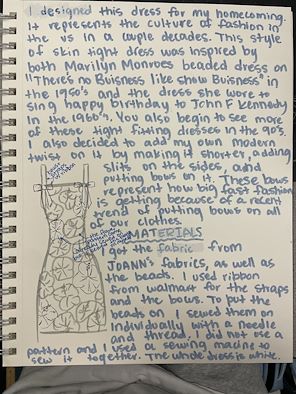 I designed this dress for my homecoming.
It represents the culture of fashion in
the US in a couple decades. This style
of skin tight dress was inspired by
both Marilyn Monroes beaded dress on
"There's no Buisness like show Buisness" in
the 1950's and the dress she wore to
sing happy birthday to John F Kennedy
In the 1960's. You also begin to see more
of these tight fitting dresses in the 90's.
I also decided to add my own modern
twist on it by making it shorter, adding
slits on the sides, and
putting bows on it. These bows
represent how big fast fashion
is getting because of a recent
trend of putting bows on all
of our clothes.
MATERIALS
I got the fabric from
JOANN's fabrics, as well as
the beads. I used ribbon
from walmart for the straps
and the bows. To put the
beads on I sewed them on
Individually with a needle
and thread. I did not use a
pattern and I used a sewing macine to
sew it together. The whole dress is white.